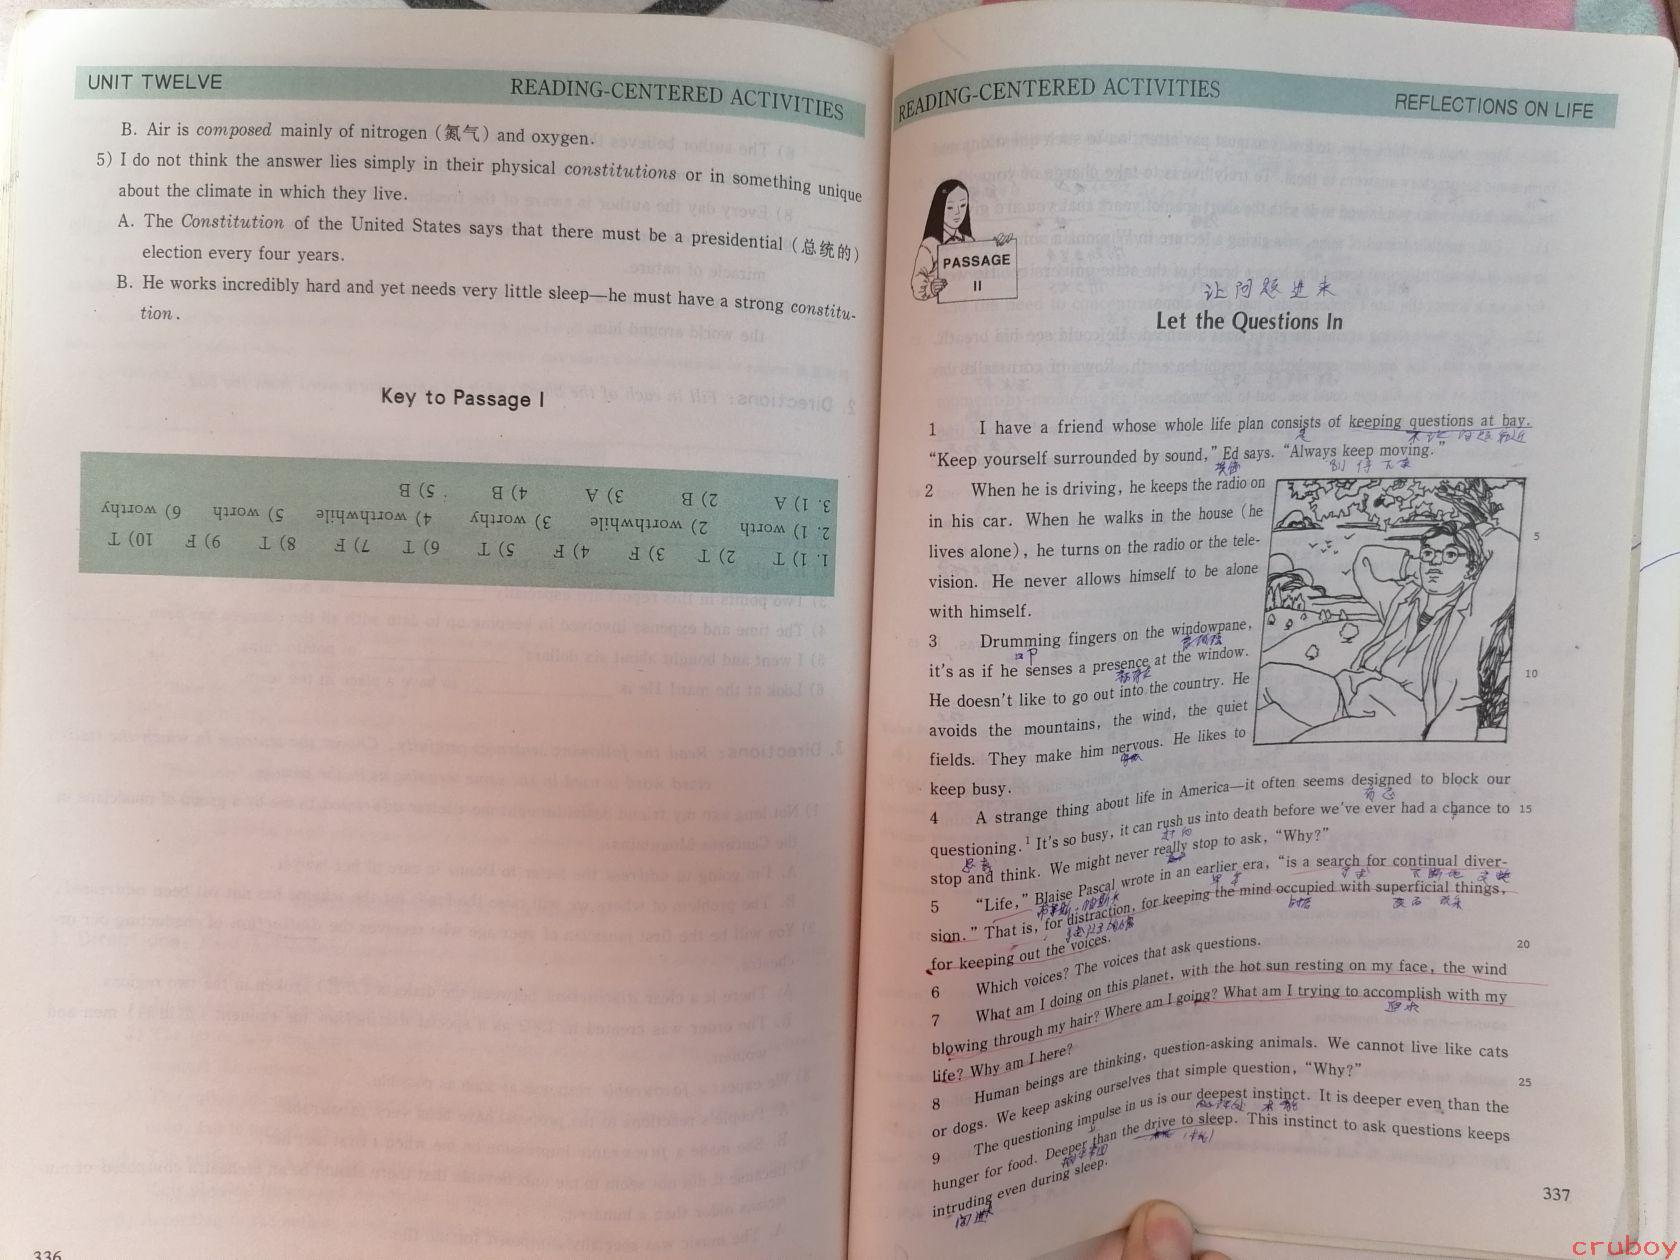 UNIT TWELVE
READING-CENTERED ACTIVITIES
B. Air is composed mainly of nitrogen (氮气) and oxygen.
5) I do not think the answer lies simply in their physical constitutions or in something unique
about the climate in which they live.
A. The Constitution of the United States says that there must be a presidential (总统的)
election every four years.
B. He works incredibly hard and yet needs very little sleep—he must have a strong constitu-
tion.
Key to Passage I
1. 1) T 2) T 3) F 4) F 5) T 6) T 7) F 8) T 9) F 10) T
2. 1) worth 2) worthwhile 3) worthy 4) worthwhile 5) worth 6) worthy
3. 1) A 2) B 3) A 4) B 5) B
336
READING-CENTERED ACTIVITIES
REFLECTIONS ON LIFE
PASSAGE
II
让问题进来
Let the Questions In
1 I have a friend whose whole life plan consists of keeping questions at bay.
是 不让问题靠近
"Keep yourself surrounded by sound," Ed says. "Always keep moving."
别停下来
2 When he is driving, he keeps the radio on
in his car. When he walks in the house (he
lives alone), he turns on the radio or the tele-
5
vision. He never allows himself to be alone
with himself.
3 Drumming fingers on the windowpane,
it's as if he senses a presence at the window.
He doesn't like to go out into the country. He
10
avoids the mountains, the wind, the quiet
fields. They make him nervous. He likes to
keep busy.
4 A strange thing about life in America—it often seems designed to block our
questioning.¹ It's so busy, it can rush us into death before we've ever had a chance to
15
stop and think. We might never really stop to ask, "Why?"
5 "Life," Blaise Pascal wrote in an earlier era, "is a search for continual diver-
sion." That is, for distraction, for keeping the mind occupied with superficial things,
for keeping out the voices.
6 Which voices? The voices that ask questions.
20
7 What am I doing on this planet, with the hot sun resting on my face, the wind
blowing through my hair? Where am I going? What am I trying to accomplish with my
life? Why am I here?
8 Human beings are thinking, question-asking animals. We cannot live like cats
or dogs. We keep asking ourselves that simple question, "Why?"
25
9 The questioning impulse in us is our deepest instinct. It is deeper even than the
本能
hunger for food. Deeper than the drive to sleep. This instinct to ask questions keeps
intruding even during sleep.
闯进
337
cruboy